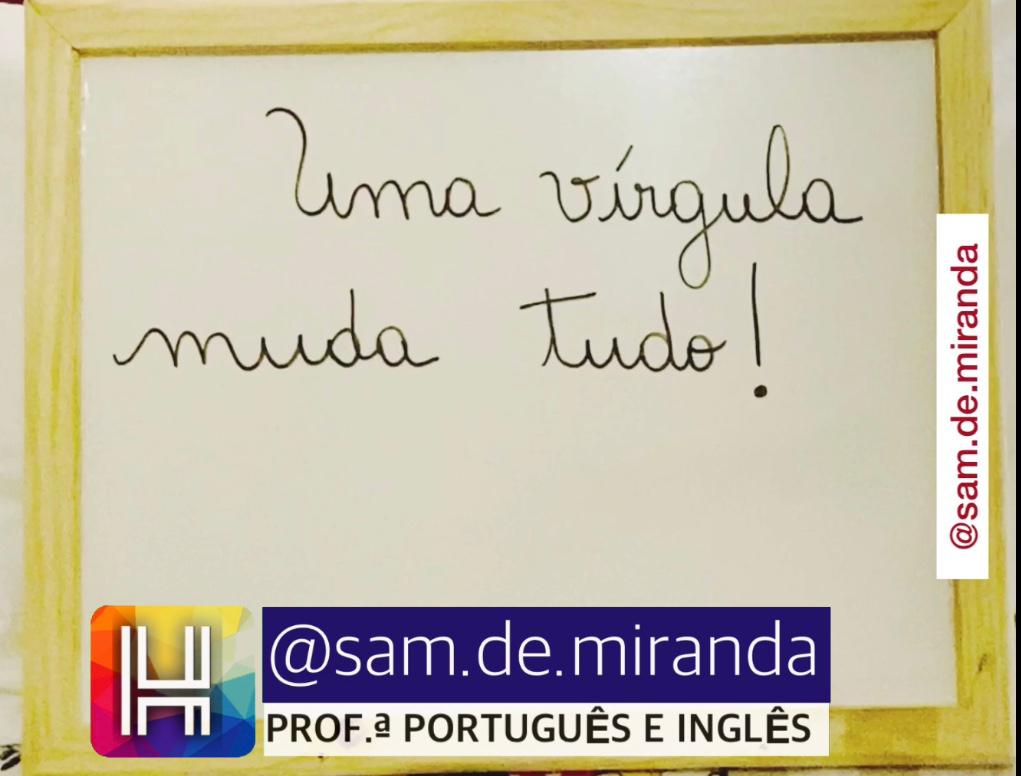 Uma vírgula
muda tudo!
@sam.de.miranda
@sam.de.miranda
PROF.ª PORTUGUÊS E INGLÊS